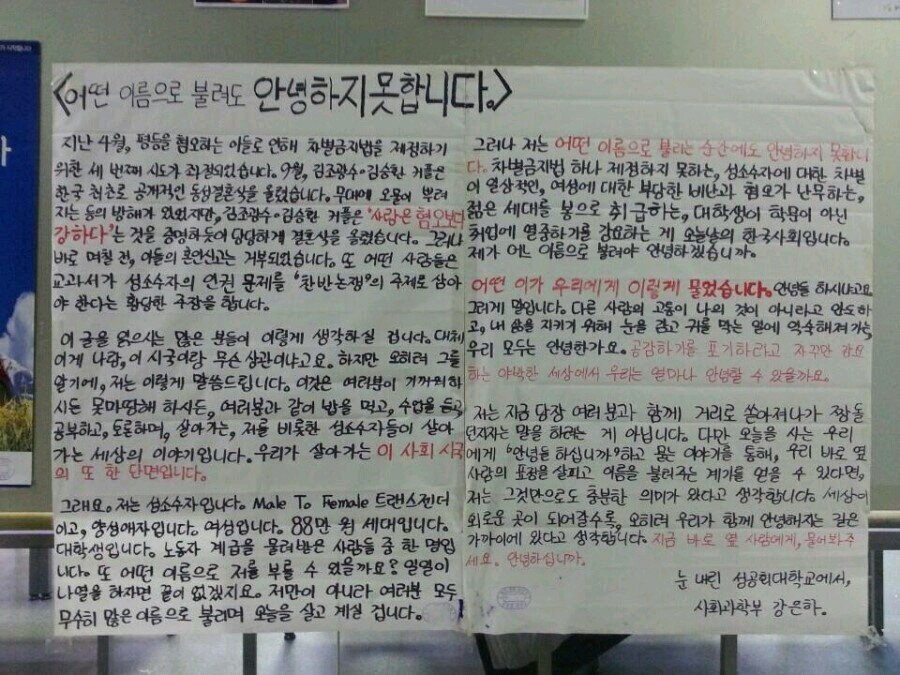 <어떤 이름으로 불려도 안녕하지못합니다.>
지난 4월, 평등을 혐오하는 이들로 인해 차별금지법을 제정하기
위한 세 번째 시도가 좌절되었습니다. 9월, 김조광수·김승환 커플은
한국 최초로 공개적인 동성결혼식을 올렸습니다. 무대에 오물이 뿌려
지는 등의 방해가 있었지만, 김조광수·김승환 커플은 '사랑은 혐오보다
강하다'는 것을 증명하듯이 담담하게 결혼식을 올렸습니다. 그러나
바로 며칠 전, 이들의 혼인신고는 거부되었습니다. 또 어떤 사람들은
교과서가 성소수자의 인권 문제를 '찬반논쟁'의 주제로 삼아
야 한다는 황당한 주장을 합니다.
이 글을 읽으시는 많은 분들이 이렇게 생각하실 겁니다. 대체
이게 나랑, 이 시국이랑 무슨 상관이냐고요. 하지만 오히려 그를
알기에, 저는 이렇게 말씀드립니다. 이것은 여러분이 기꺼워하
시든 못마땅해 하시든, 여러분과 같이 밥을 먹고, 수업을 듣고
공부하고, 토론하며, 살아가는, 저를 비롯한 성소수자들이 살아
가는 세상의 이야기입니다. 우리가 살아가는 이 사회 시국
의 또 한 단면입니다.
그래요. 저는 성소수자입니다. Male To Female 트랜스젠더
이고, 양성애자입니다. 여성입니다. 88만 원 세대입니다.
대학생입니다. 노동자 계급을 물려받은 사람들 중 한 명입
니다. 또 어떤 이름으로 저를 부를 수 있을까요? 일일이
나열을 하자면 끝이 없겠지요. 저만이 아니라 여러분 모두
무수히 많은 이름으로 불리며 오늘을 살고 계실 겁니다.
그러나 저는 어떤 이름으로 불리는 순간에도 안녕하지 못합니
다. 차별금지법 하나 제정하지 못하는, 성소수자에 대한 차별
이 일상적인, 여성에 대한 부당한 비난과 혐오가 난무하는,
젊은 세대를 봉으로 취급하는, 대학생이 학문이 아닌
취업에 열중하기를 강요하는 게 오늘날의 한국사회입니다.
제가 어느 이름으로 불려야 안녕하겠습니까.
어떤 이가 우리에게 이렇게 물었습니다. 안녕들 하시냐고요
그러게 말입니다. 다른 사람의 고통이 나의 것이 아니라고 안도하
고, 내 삶을 지키기 위해 눈을 감고 귀를 막는 일에 익숙해져 가는,
우리 모두는 안녕한가요. 공감하기를 포기하라고 자꾸만 강요
하는 야박한 세상에서 우리는 얼마나 안녕할 수 있을까요.
저는 지금 당장 여러분과 함께 거리로 쏟아져나가 짱돌
던지자는 말을 하려는 게 아닙니다. 다만 오늘을 사는 우리
에게 '안녕들 하십니까?' 하고 묻는 이야기를 통해, 우리 바로 옆
사람의 표정을 살피고 이름을 불러주는 계기를 얻을 수 있다면,
저는 그것만으로도 충분한 의미가 있다고 생각합니다. 세상이
외로운 곳이 되어갈수록, 오히려 우리가 함께 안녕해지는 길은
가까이에 있다고 생각합니다. 지금 바로 옆 사람에게, 물어봐주
세요. 안녕하십니까.
눈 내린 성공회대학교에서,
사회과학부 강은하.